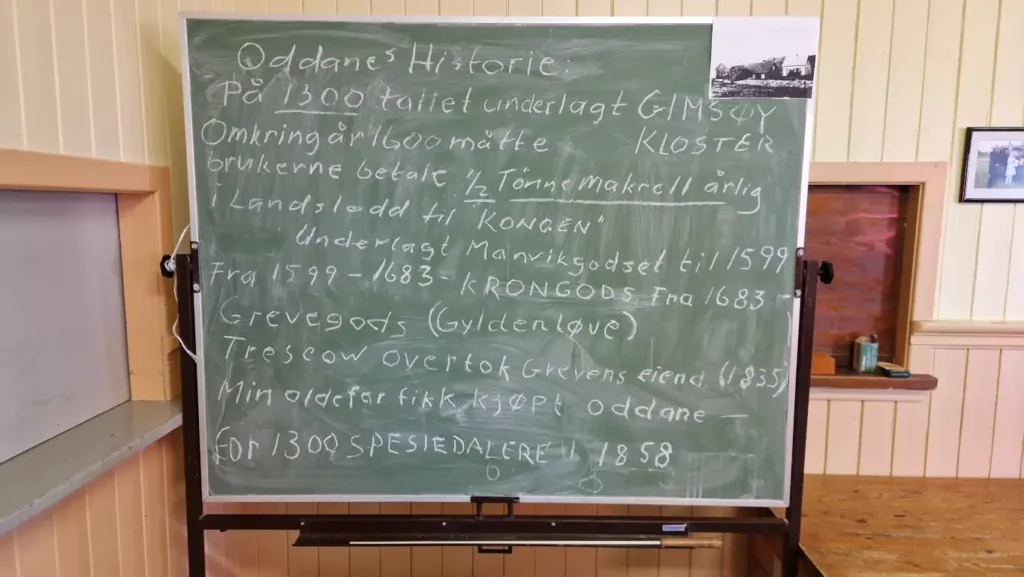 Oddanes Historie:
På 1300 tallet underlagt GIMSØY
Omkring år 1600 måtte KLOSTER
brukerne betale 1/2 Tønne Makrell årlig
i Landsledd til "KONGEN"
Underlagt Manvikgodset til 1599
Fra 1599 - 1683 - KRONGODS Fra 1683 -
Grevegods (Gyldenløve)
Trescow overtok Grevens eiend (1835)
Min oldefar fikk kjøpt oddane —
For 1300 SPESIEDALERE i 1858